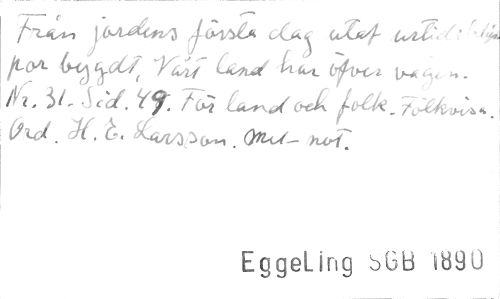 Från jordens första dag utaf urtids
por byggdt, Vårt land har öfver vågen.
Nr. 31. Sid. 49. För land och folk. Folkvisa.
Ord. H. E. Larsson. Mel- not.
EggeLing SGB 1890